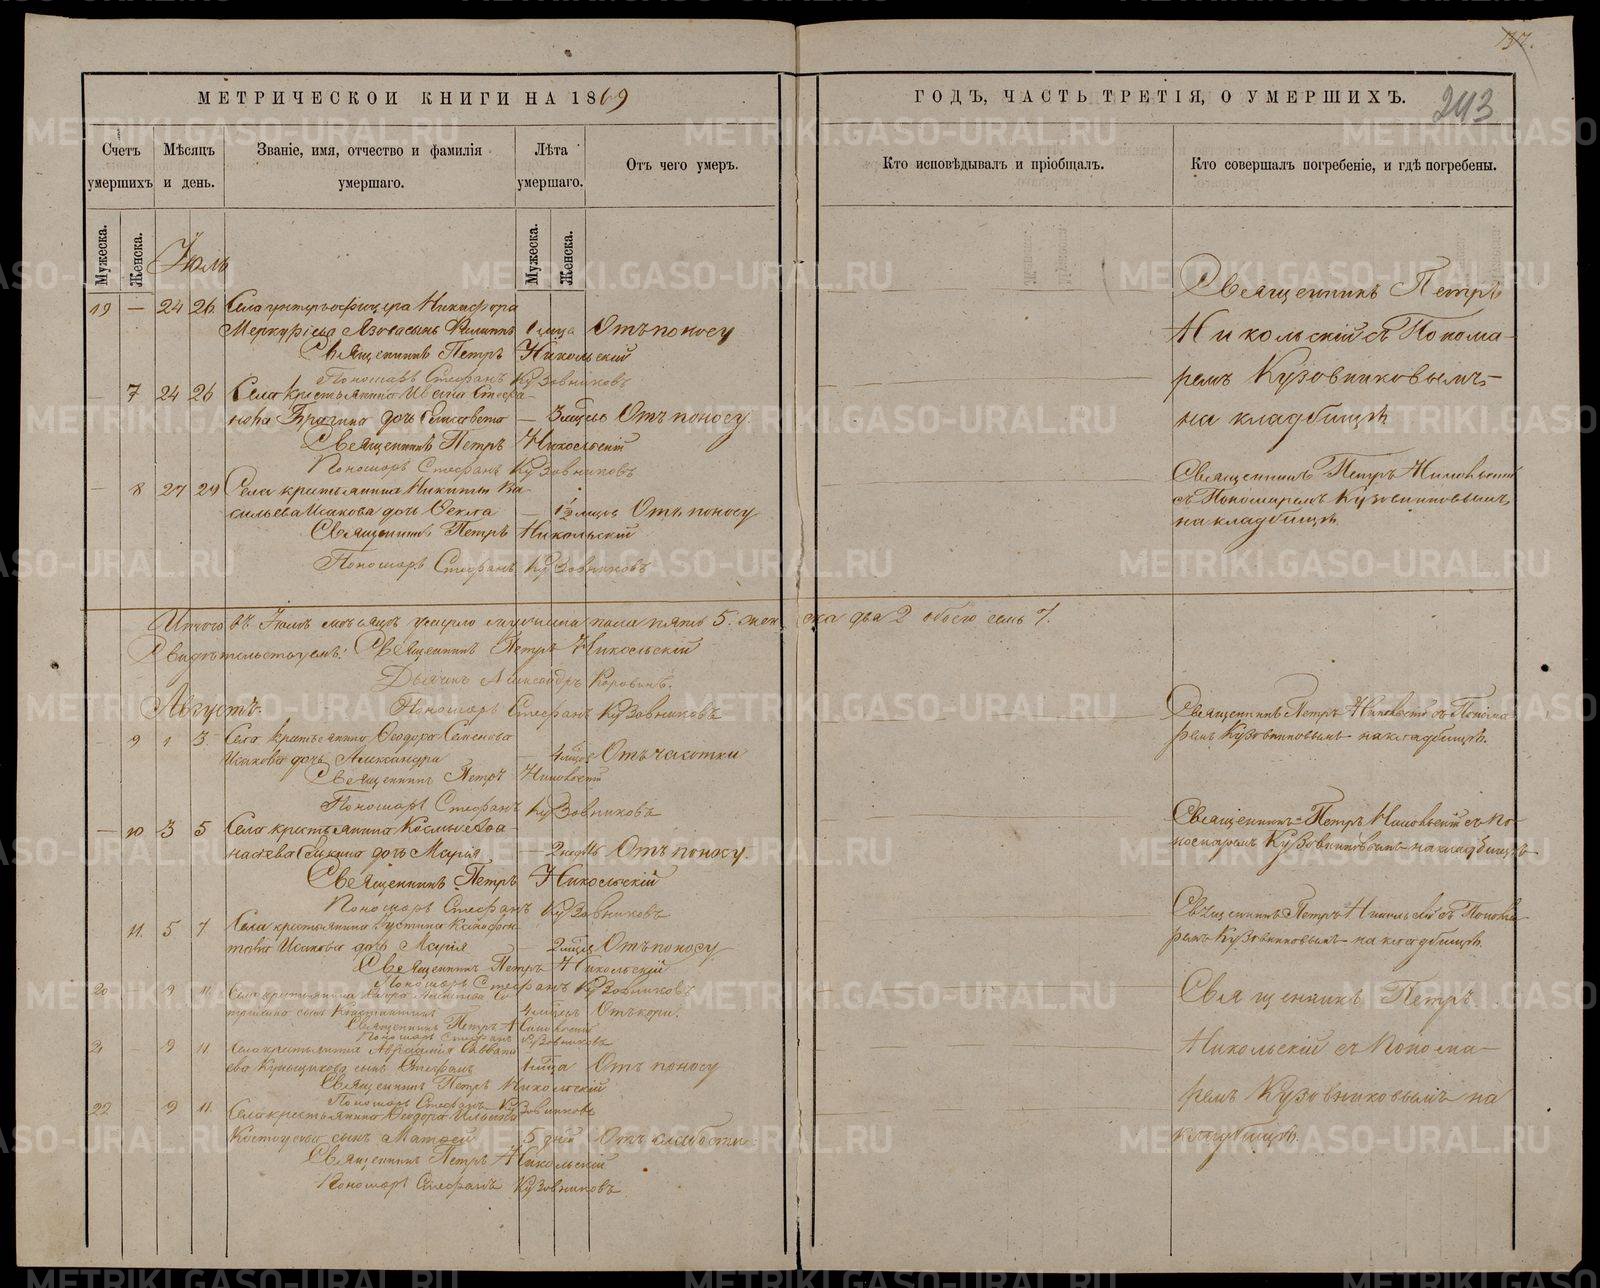 137.
МЕТРИЧЕСКОЙ КНИГИ НА 1869
ГОДЪ, ЧАСТЬ ТРЕТІЯ, О УМЕРШИХЪ.
243
Счетъ умершихъ
Мѣсяцъ и день.
Званіе, имя, отчество и фамилія умершаго.
Лѣта умершаго.
Отъ чего умеръ.
Кто исповѣдывалъ и пріобщалъ.
Кто совершалъ погребеніе, и гдѣ погребены.
Мужеска.
Женска.
Мужеска.
Женска.
Іюль
19 — 24 26 Села унтеръ-офицера Никифора
Меркурьева сынъ Филиппъ Отъ поносу
Священникъ Петръ Никольскій
Пономарь Стефанъ Кузовниковъ
Священникъ Петръ
Никольскій съ Понома-
ремъ Кузовниковымъ
на кладбищѣ
— 7 24 26 Села крестьянина Ивана Стефа-
нова дочь Елисавета — 3 Отъ поносу.
Священникъ Петръ Никольскій
Пономарь Стефанъ Кузовниковъ
— 8 27 29 Села крестьянина Никиты Ва-
сильева Исакова дочь Фекла — 1½ Отъ поносу
Священникъ Петръ Никольскій
Пономарь Стефанъ Кузовниковъ
Священникъ Петръ Никольскій
съ Пономаремъ Кузовниковымъ,
на кладбищѣ.
Итого въ Іюлѣ мѣсяцѣ умерло мужеска пола пять 5. женска два 2 обоего семь 7.
Свидѣтельствуемъ: Священникъ Петръ Никольскій
Дьячекъ Александръ Коровинъ.
Пономарь Стефанъ Кузовниковъ
Августъ.
9 1 3 Села крестьянина Феодора Семенова
Исакова дочь Александра — 4 Отъ чахотки
Священникъ Петръ Никольскій
Пономарь Стефанъ Кузовниковъ
Священникъ Петръ Никольскій съ Понома-
ремъ Кузовниковымъ на кладбищѣ.
— 10 3 5 Села крестьянина Космы Афа-
насьева дочь Марія — 2 Отъ поносу.
Священникъ Петръ Никольскій
Пономарь Стефанъ Кузовниковъ
Священникъ Петръ Никольскій съ По-
номаремъ Кузовниковымъ на кладбищѣ
11. 5 7 Села крестьянина Іустина
Исакова дочь Марія — 2 Отъ поносу
Священникъ Петръ Никольскій
Пономарь Стефанъ Кузовниковъ
Священникъ Петръ Никольскій съ Понома-
ремъ Кузовниковымъ на кладбищѣ.
20 9 11 Села крестьянина
сынъ Константинъ 4 Отъ кори.
Священникъ Петръ Никольскій
Пономарь Стефанъ Кузовниковъ
Священникъ Петръ
Никольскій съ Понома-
ремъ Кузовниковымъ на
кладбищѣ.
21 — 9 11 Села крестьянина Авраамія Савват-
ева сынъ Стефанъ Отъ поносу
Священникъ Петръ Никольскій
Пономарь Стефанъ Кузовниковъ
22 9 11. Села крестьянина Феодора
Костоусова сынъ Матфей 5 дней Отъ слабости.
Священникъ Петръ Никольскій
Пономарь Стефанъ Кузовниковъ
METRIKI.GASO-URAL.RU